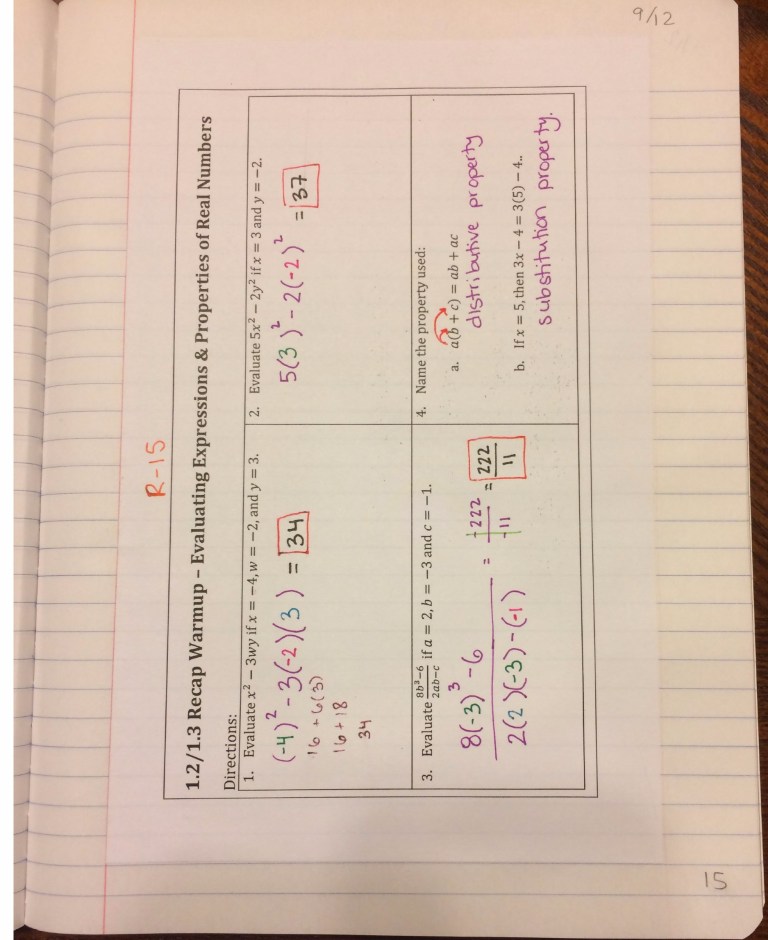 9/12
R-15
1.2/1.3 Recap Warmup – Evaluating Expressions & Properties of Real Numbers
Directions:
1. Evaluate x² − 3wy if x = −4, w = −2, and y = 3.
(-4)² - 3(-2)(3) = 34
16 + 6(3)
16 + 18
34
2. Evaluate 5x² − 2y² if x = 3 and y = −2.
5(3)² - 2(-2)² = 37
3. Evaluate (8b³−6)/(2ab−c) if a = 2, b = −3 and c = −1.
8(-3)³ - 6
2(2)(-3) - (-1)
= -222/-11 = 222/11
4. Name the property used:
a. a(b + c) = ab + ac
distributive property
b. If x = 5, then 3x − 4 = 3(5) − 4..
substitution property.
15